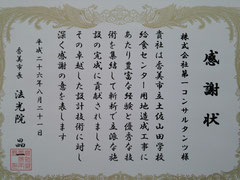 感謝状
株式会社第一コンサルタンツ様
貴社は香美市立土佐山田学校
給食センター用地造成工事に
あたり豊富な経験と優秀な技
術を集結して斬新で立派な施
設の完成に貢献されました
その卓越した設計技術に対し
深く感謝の意を表します
平成二十六年八月二十一日
香美市長 法光院 晶一